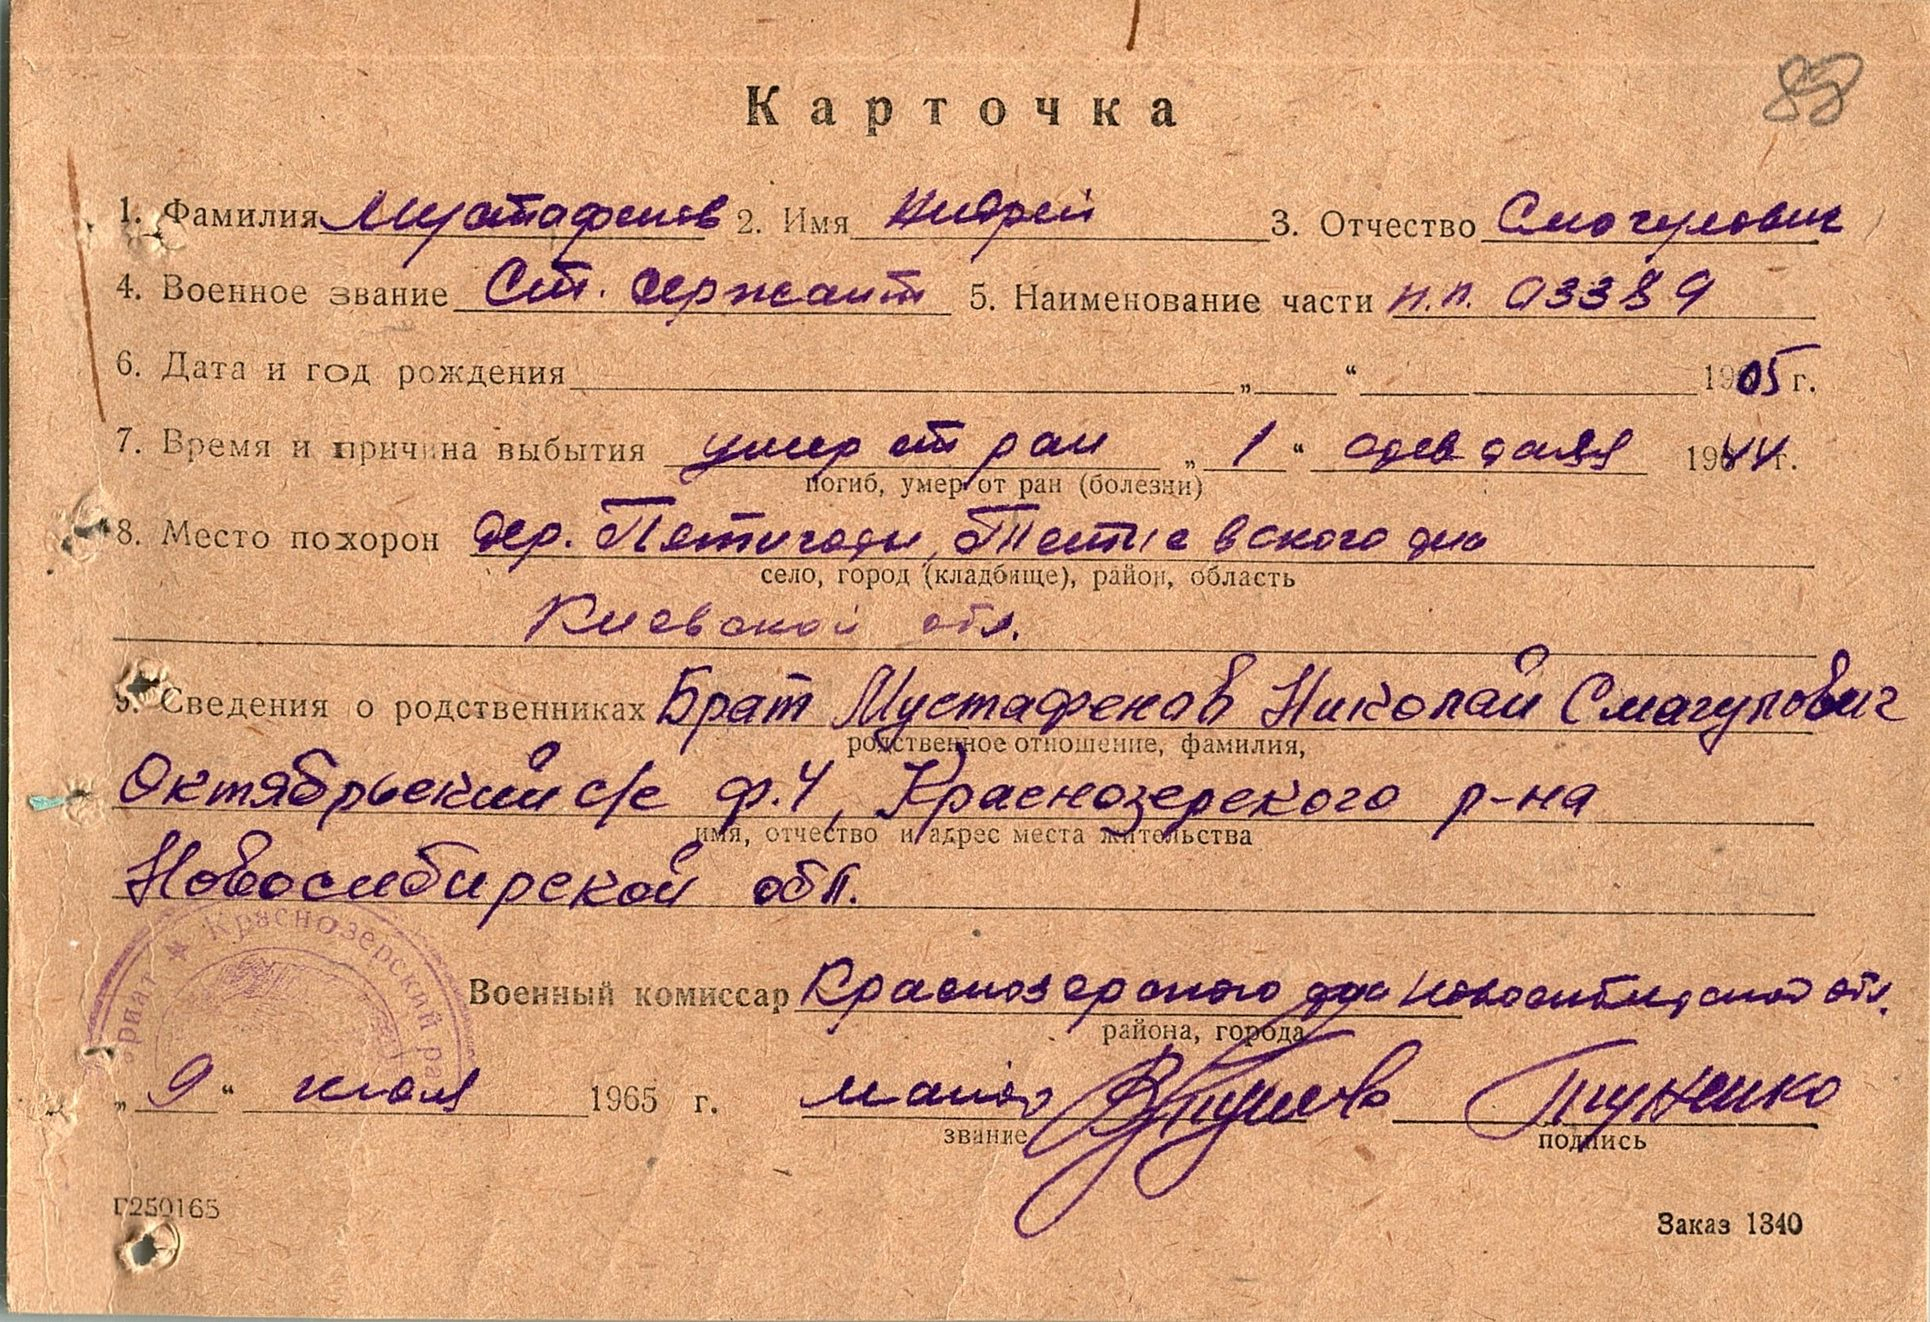 88
Карточка
1. Фамилия Мустафенов 2. Имя Андрей 3. Отчество Смагулович
4. Военное звание Ст. сержант 5. Наименование части п.п. 03389
6. Дата и год рождения „ “ 1905 г.
7. Время и причина выбытия умер от ран „ 1 “ 1944 г.
погиб, умер от ран (болезни)
8. Место похорон дер. Пятигоры, Тетиевского р-на
село, город (кладбище), район, область
Киевской обл.
9. Сведения о родственниках Брат Мустафенов Николай Смагулович
родственное отношение, фамилия,
Октябрьский с/с ф. 4, Краснозерского р-на
имя, отчество и адрес места жительства
Новосибирской обл.
риат ★ Краснозерский ра
Военный комиссар Краснозерского р-на Новосибирской обл.
района, города
„ 9 “ июля 1965 г. майор
звание подпись
Г250165
Заказ 1340